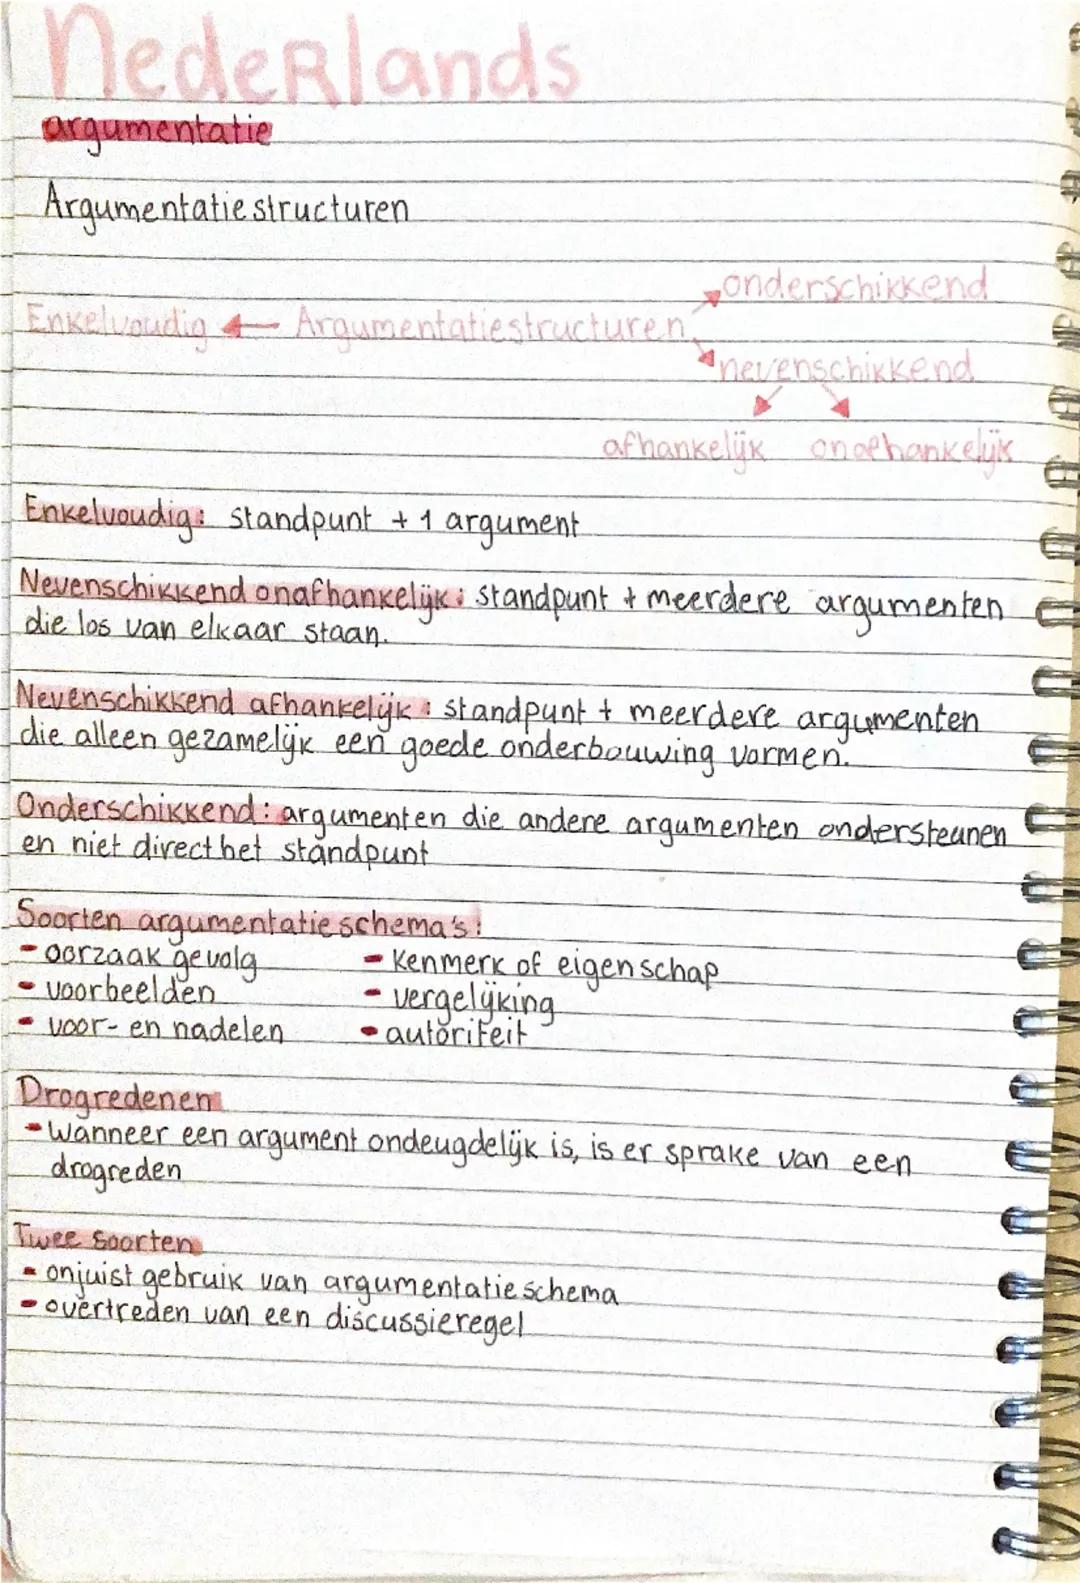 NedeRlands
argumentatie
Argumentatiestructuren
onderschikkend
Enkelvoudig ← Argumentatiestructuren
nevenschikkend
afhankelijk onafhankelijk
Enkelvoudig: standpunt + 1 argument
Nevenschikkend onafhankelijk: standpunt + meerdere argumenten
die los van elkaar staan.
Nevenschikkend afhankelijk: standpunt + meerdere argumenten
die alleen gezamelijk een goede onderbouwing vormen.
Onderschikkend: argumenten die andere argumenten ondersteunen
en niet direct het standpunt
Soorten argumentatieschema's:
- oorzaak gevolg - kenmerk of eigenschap
- voorbeelden - vergelijking
- voor- en nadelen - autoriteit
Drogredenen
- wanneer een argument ondeugdelijk is, is er sprake van een
drogreden
Twee soorten
- onjuist gebruik van argumentatieschema
- overtreden van een discussieregel